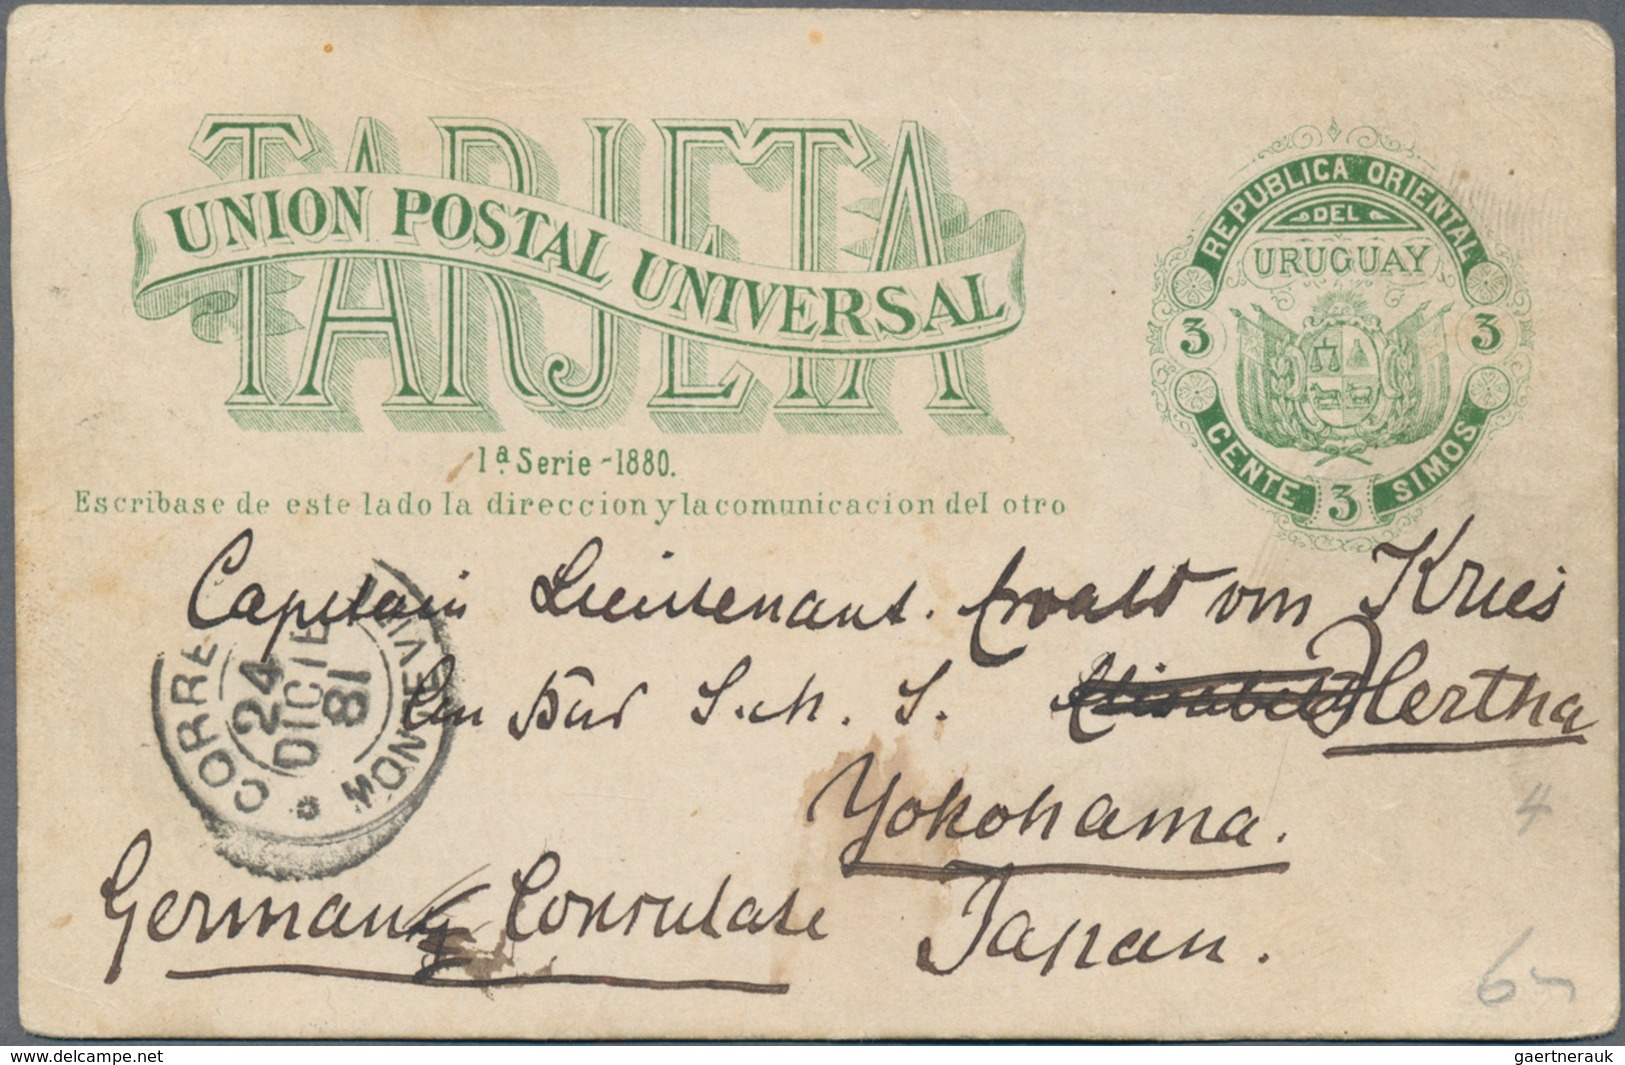 TARJETA
UNION POSTAL UNIVERSAL
REPUBLICA ORIENTAL
DEL
URUGUAY
3 3
CENTE 3 SIMOS
1ª Serie - 1880.
Escribase de este lado la direccion y la comunicacion del otro
Capitain Lieutenant. Ewald von Kries
An Bord S. M. S. Elisabeth Hertha
Yokohama.
German Consulate Japan.
CORRE
24
DICIE
81
MONTEVI
4
6
www.delcampe.net
gaertnerauk